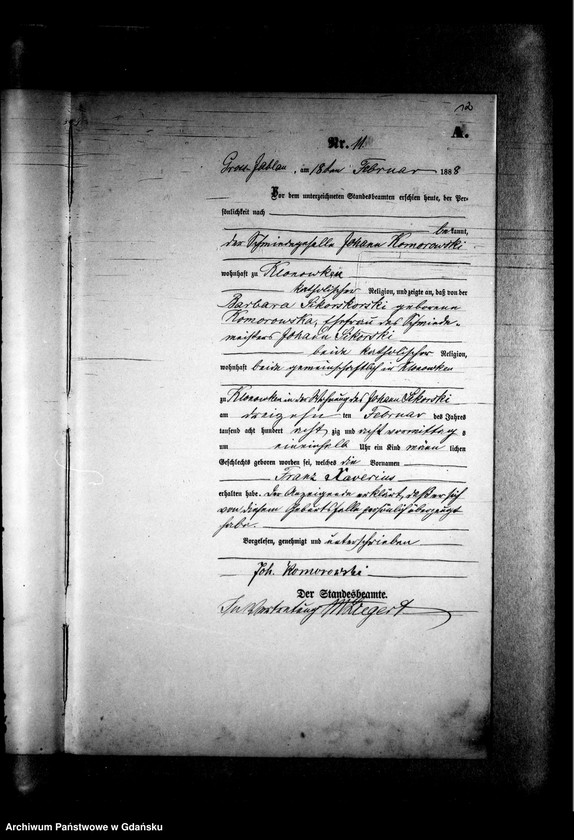 12
A.
Nr. 11
Gross Jablau, am 18ten Februar 1888
Vor dem unterzeichneten Standesbeamten erschien heute, der Per-
sönlichkeit nach
bekannt,
der Schmiedegeselle Johann Komorowski
wohnhaft zu Klonowken
katholischer Religion, und zeigte an, daß von der
Barbara Sikorskorski geborene
Komorowska, Ehefrau des Schmiede-
meisters Johann Sikorski
beide katholischer Religion,
wohnhaft beide gemeinschaftlich in Klonowken
zu Klonowken in der Wohnung des Johann Sikorski
am dreizehn ten Februar des Jahres
tausend acht hundert acht zig und acht vormittag s
um eineinhalb Uhr ein Kind männ lichen
Geschlechts geboren worden sei, welches die Vornamen
Franz Xaverius
erhalten habe. Der Anzeigende erklärt, daß er sich
von diesem Geburtsfalle persönlich überzeugt
habe.
Vorgelesen, genehmigt und unterschrieben
Joh. Komorowski
Der Standesbeamte.
In Vertretung
Archiwum Państwowe w Gdańsku